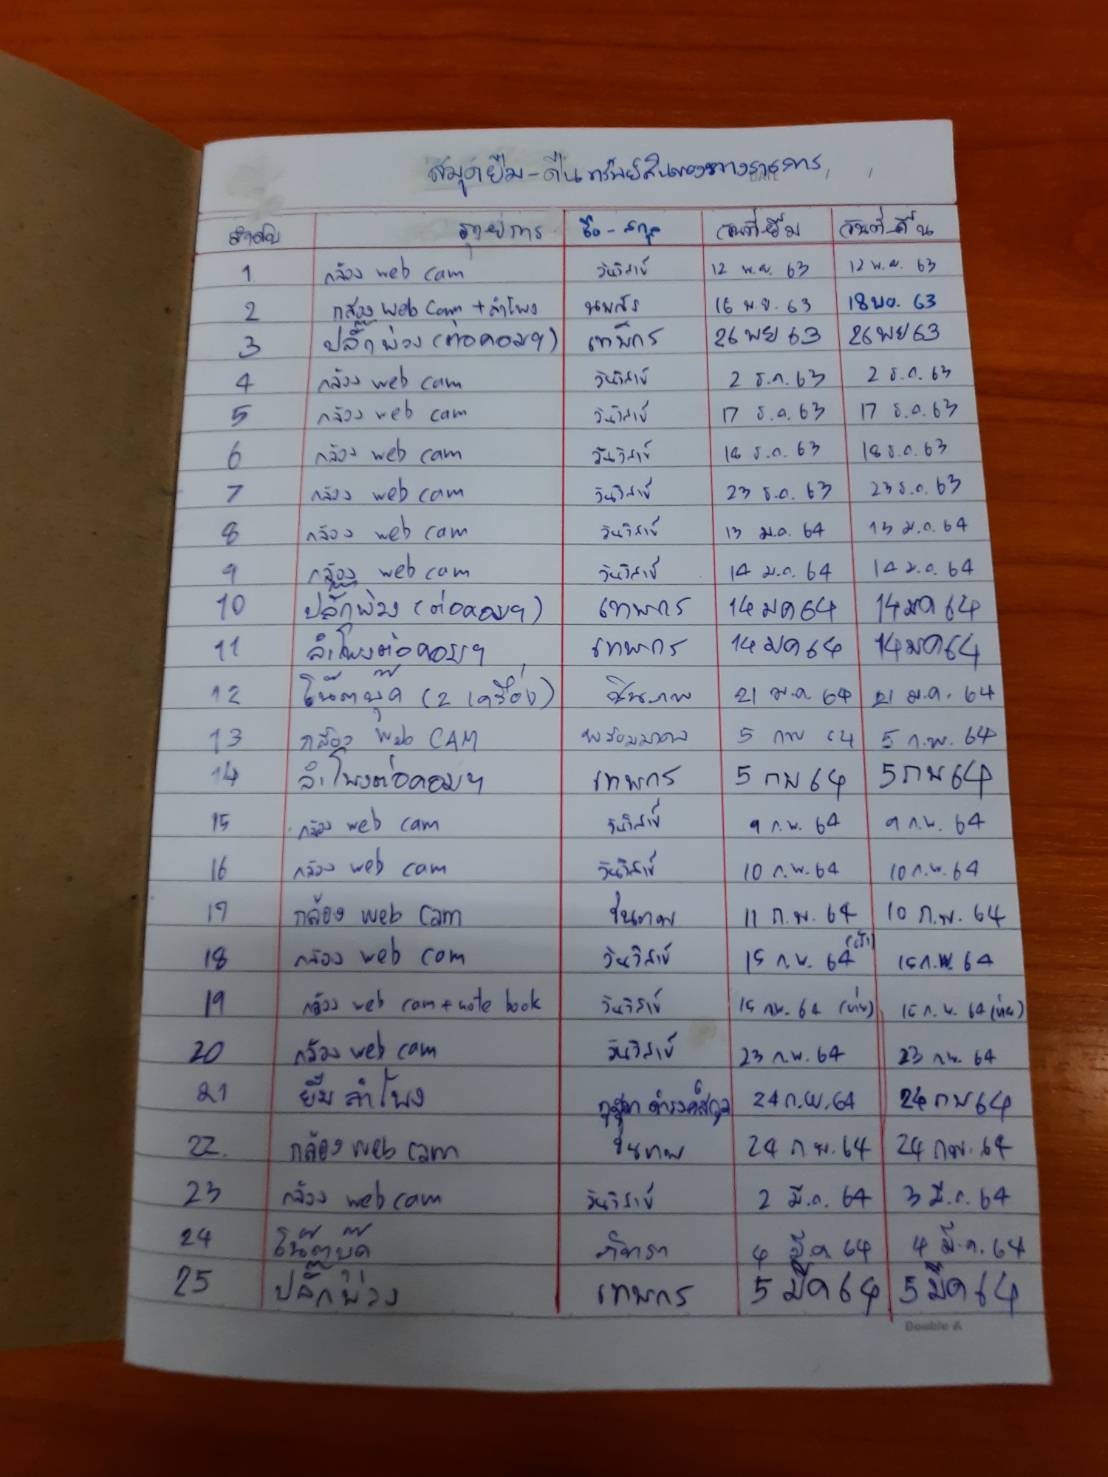 สมุดยืม-คืนทรัพย์สินของทางราชการ
ลำดับ รายการ ชื่อ-สกุล วันที่ยืม วันที่คืน
1 กล้อง web cam วันวิสาข์ 12 พ.ย. 63 12 พ.ย. 63
2 กล้อง web cam + ลำโพง 16 พ.ย. 63 18 พ.ย. 63
3 ปลั๊กพ่วง (ต่อคอมฯ) เทพกร 26 พย 63 26 พย 63
4 กล้อง web cam วันวิสาข์ 2 ธ.ค. 63 2 ธ.ค. 63
5 กล้อง web cam วันวิสาข์ 17 ธ.ค. 63 17 ธ.ค. 63
6 กล้อง web cam วันวิสาข์ 18 ธ.ค. 63 18 ธ.ค. 63
7 กล้อง web cam วันวิสาข์ 23 ธ.ค. 63 23 ธ.ค. 63
8 กล้อง web cam วันวิสาข์ 13 ม.ค. 64 13 ม.ค. 64
9 กล้อง web cam วันวิสาข์ 14 ม.ค. 64 14 ม.ค. 64
10 ปลั๊กพ่วง (ต่อคอมฯ) เทพกร 14 มค 64 14 มค 64
11 ลำโพงต่อคอมฯ เทพกร 14 มค 64 14 มค 64
12 โน๊ตบุ๊ค (2 เครื่อง) 21 ม.ค. 64 21 ม.ค. 64
13 กล้อง Web CAM 5 กพ 64 5 ก.พ. 64
14 ลำโพงต่อคอมฯ เทพกร 5 กพ 64 5 กพ 64
15 กล้อง web cam วันวิสาข์ 9 ก.พ. 64 9 ก.พ. 64
16 กล้อง web cam วันวิสาข์ 10 ก.พ. 64 10 ก.พ. 64
17 กล้อง web cam 11 ก.พ. 64 10 ก.พ. 64
18 กล้อง web cam วันวิสาข์ 15 ก.พ. 64 (เช้า) 15 ก.พ. 64
19 กล้อง web cam + note book วันวิสาข์ 15 กพ. 64 (บ่าย) 15 ก.พ. 64 (บ่าย)
20 กล้อง web cam วันวิสาข์ 23 ก.พ. 64 23 ก.พ. 64
21 ยืม ลำโพง 24 ก.พ. 64 24 กพ 64
22. กล้อง web cam 24 ก.พ. 64 24 กพ. 64
23 กล้อง web cam วันวิสาข์ 2 มี.ค. 64 3 มี.ค. 64
24 โน๊ตบุ๊ค 4 มี.ค 64 4 มี.ค. 64
25 ปลั๊กพ่วง เทพกร 5 มีค 64 5 มีค 64
Double A